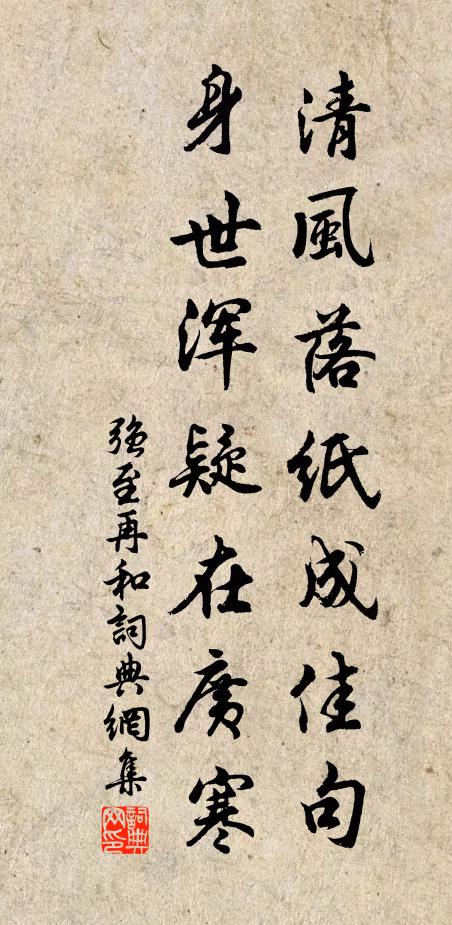 清風落紙成佳句
身世浑疑在廣寒
強至再和詞典網集
詞典網印